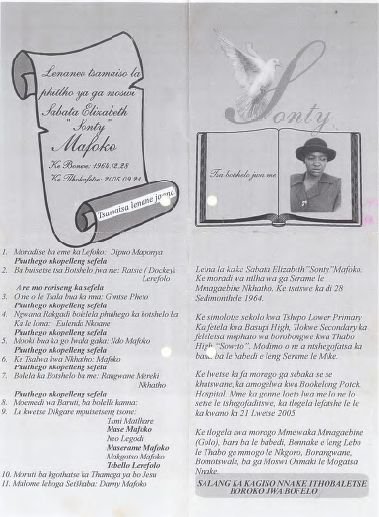 Lenaneo tsamaiso la
phitlho ya ga nosiwi
Sabata Elizabeth
"Sonty"
Mafoko
Ke Bonwe: 1964.12.28
Ke Tlhokafetse: 2005.09.21
Tsamaisa lenane
1. Moradise ba eme ka Lefoko: Dipuo Maponya
Phuthego skopelleng sefela
2. Ba buisetse tsa Botshelo jwa ne: Ratsie (Dockey)
Lerefolo
Are mo roriseng ka sefela
3. O ne o le Tsala bua ka nna: Gontse Pheto
Phuthego skopelleng sefela
4. Ngwana Rakgadi boelela phuthego ka botshelo la
Ka le lona: Eulende Nkoane
Phuthego skopelleng sefela
5. Mooki bua ka go lwala gaka: Tido Mafoko
Phuthego skopelleng sefela
6. Ke Tsalwa jwa Nkhatho: Mafoko
Phuthego skopelleng sefela
7. Bolela ka Botshelo ba me: Rangwane Mereki
Nkhatho
Phuthego skopelleng sefela
8. Moemedi wa Baruti, ba bolelle kanna:
9. La kwetse Dikgare mpuisetseng tsone:
Tami Matlhare
Nase Mafoko
Neo Legodi
Naserame Mafoko
Nakgotso Mafoko
Tebello Lerefolo
10. Moruti ba kgothatse ka Thomega ya bo Jesu
11. Malome leboga Setshaba: Damy Mafoko
Sonty
Tsa botshelo jwa me
Leina la kake Sabata Elizabeth "Sonty" Mafoko.
Ke moradi wa ntlhawa ga Sarame le
Mnagaebine Nkhatho. Ke tsatswe ka di 28
Sedimonthole 1964.
Ke simolotse sekolo kwa Tshupo Lower Primary
Ka fetela kwa Basupi High, Tlokwe Secondary ka
feleletsa mophato wa borobongwe kwa Thabo
High "Soweto". Modimo o re a ntshegofatsa ka
bana ba le babedi e leng Serame le Mike.
Ke lwetse ka fa morego ga sebaka se se
khutswane, ka amogelwa kwa Bookelong Potch
Hospital. Mme ka gonne loeto lwa me lo ne lo
setse le tshegofaditswe, ka tlogela lefatshe le le
ka kwano ka 21 Lwetse 2005
Ke tlogela awa morego Mmewaka Mnagaebine
(Golo), bara ba le babedi, Bonnake e leng Lebo
le Thabo ge mmogo le Nkgoro, Borangwane,
Bomotswala, ba ga Moswi Osmaki le Mogatsa
Nnake.
SALANG KA KAGISO NNAKE ITHOBALETSE
BOROKO JWA BOFELO